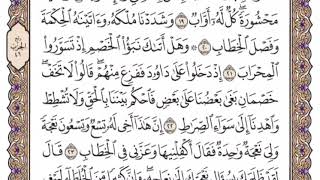 مَحْشُورَةً كُلٌّ لَّهُۥٓ أَوَّابٌ ١٩ وَشَدَدْنَا مُلْكَهُۥ وَءَاتَيْنَٰهُ ٱلْحِكْمَةَ
وَفَصْلَ ٱلْخِطَابِ ٢٠ وَهَلْ أَتَىٰكَ نَبَؤُا۟ ٱلْخَصْمِ إِذْ تَسَوَّرُوا۟
ٱلْمِحْرَابَ ٢١ إِذْ دَخَلُوا۟ عَلَىٰ دَاوُۥدَ فَفَزِعَ مِنْهُمْ قَالُوا۟ لَا تَخَفْ
خَصْمَانِ بَغَىٰ بَعْضُنَا عَلَىٰ بَعْضٍ فَٱحْكُم بَيْنَنَا بِٱلْحَقِّ وَلَا تُشْطِطْ
وَٱهْدِنَآ إِلَىٰ سَوَآءِ ٱلصِّرَٰطِ ٢٢ إِنَّ هَٰذَآ أَخِى لَهُۥ تِسْعٌ وَتِسْعُونَ نَعْجَةً
وَلِىَ نَعْجَةٌ وَٰحِدَةٌ فَقَالَ أَكْفِلْنِيهَا وَعَزَّنِى فِى ٱلْخِطَابِ ٢٣ قَالَ